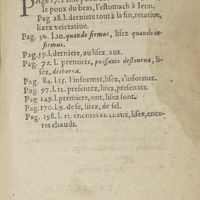 le poux du bras, l'estomach à ieun.
Pag 28. l. derniere tout à la fin, retatiue,
lizez vegetatiue.
Pag. 30. l.10. quando firmus, lisez quando in-
firmus.
Pag. 59. l. derniere, au lisez, aux.
Pag. 72. l. premiere, puissante destourna, li-
sez, destourna.
Pag. 84. l.15. l'informer, lisez, s'informer.
Pag. 97. l.12. presentez, lisez, presentes.
Pag. 149. l. premiere, ont, lisez sont.
Pag. 170. l.9. de se, lisez, de sel.
Pag. 198. l. 21. encores en chaux, lisez, enco-
res chauds.